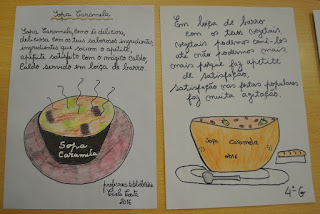 Sopa Caramela
Sopa Caramela, como és deliciosa,
deliciosa com os teus saborosos ingredientes
ingredientes que saciam o apetite,
apetite satisfeito com o mágico caldo,
Caldo servido em loiça de barro.
Sopa
Caramela
professora bibliotecária
2016
Em loiça de barro
com os teus vegetais
vegetais podemos comê-los
até não podermos mais
mais porque faz apetite
de satisfação,
satisfação nas festas populares
faz muita agitação.
Sopa Caramela
2016
4º G